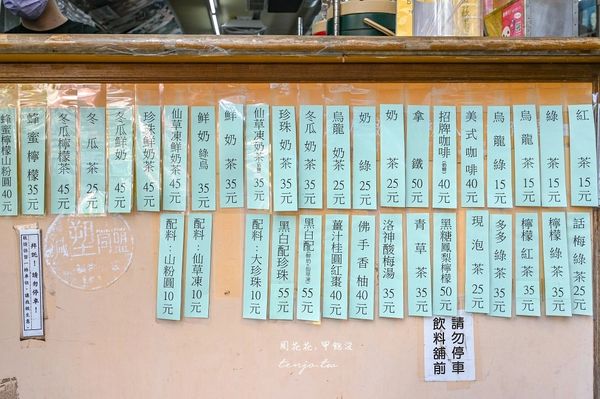 紅茶15元
綠茶15元
烏龍茶15元
烏龍綠15元
美式咖啡40元
招牌咖啡40元
拿鐵50元
奶茶25元
奶綠25元
烏龍奶茶25元
冬瓜奶茶35元
珍珠奶茶35元
仙草凍奶茶35元
鮮奶茶40元
鮮奶綠烏35元
仙草凍鮮奶茶40元
珍珠鮮奶茶45元
冬瓜鮮奶45元
冬瓜茶25元
冬瓜檸檬茶45元
蜂蜜檸檬35元
蜂蜜檸檬山粉圓40元
話梅綠茶25元
檸檬綠茶35元
檸檬紅茶35元
多多綠茶35元
現泡茶25元
黑糖鳳梨檸檬50元
青草茶35元
洛神酸梅湯35元
佛手香柚40元
薑汁桂圓紅棗40元
黑白配55元
黑白配珍珠55元
配料:大珍珠10元
配料:仙草凍10元
配料:山粉圓10元
請勿停車
飲料舖前
拜託!請勿停車!
周花花,甲飽沒
tenjo.tw